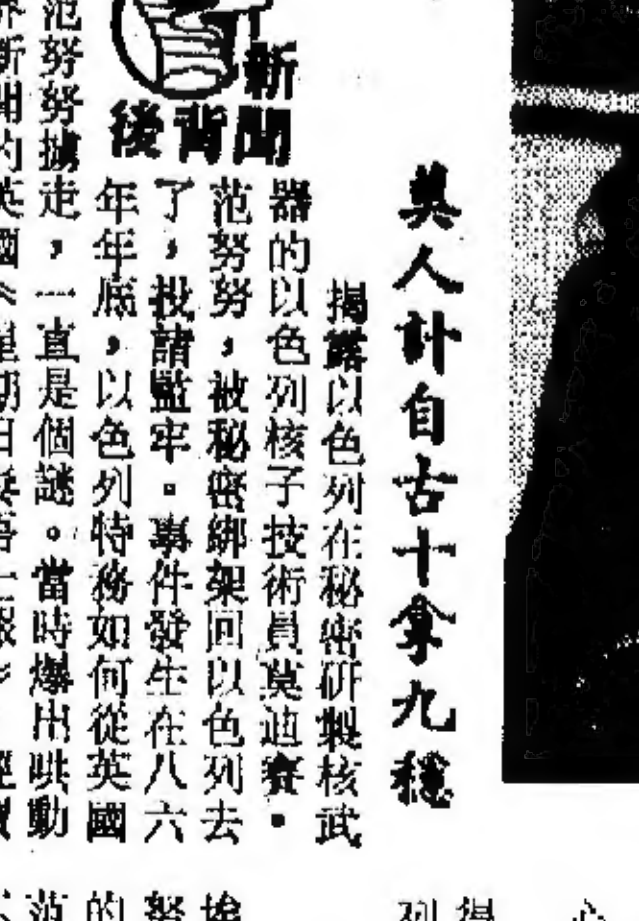 美人計自古十拿九穩
新聞
背後
揭露以色列在秘密研製核武
器的以色列核子技術員莫迪賽·
范努努，被秘密綁架回以色列去
了，投諸監牢。事件發生在八六
年年底，以色列特務如何從英國
范努努擄走，一直是個謎。當時爆出哄動
界新聞的英國《星期日